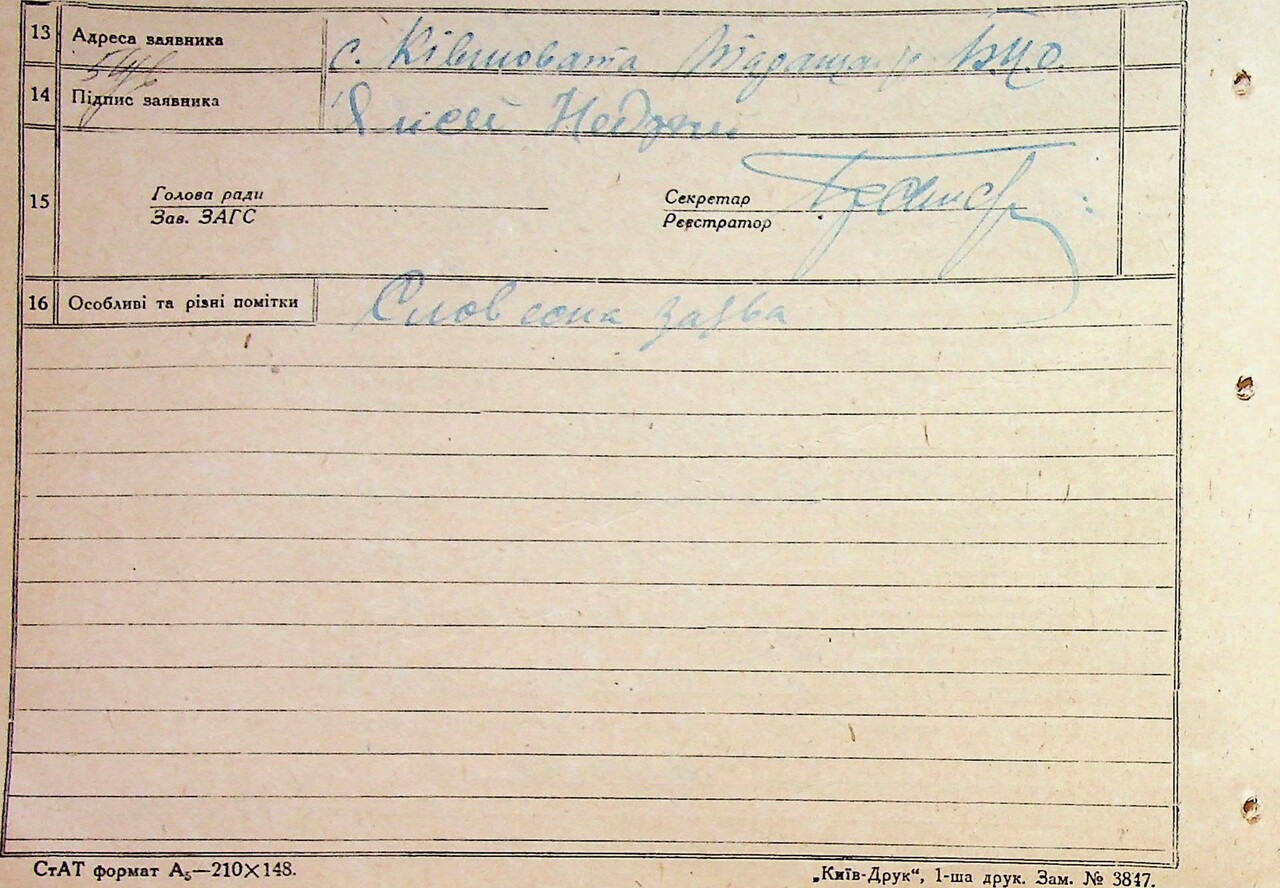 13 Адреса заявника с. Ківшовата Б.Ц.О.
14 Підпис заявника
15 Голова ради
Зав. ЗАГС
Секретар
Реєстратор
16 Особливі та різні помітки Словесна заява
СтАТ формат А₅—210×148.
„Київ-Друк“, 1-ша друк. Зам. № 3847.